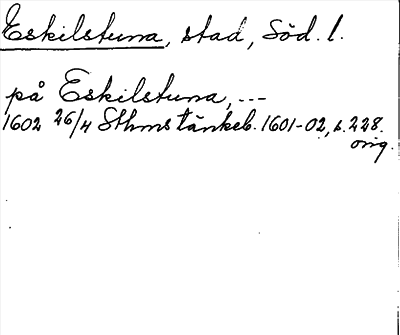 Eskilstuna, stad, Söd. l.
på Eskilstuna, ---
1602 26/4 Sthms tänkeb. 1601-02, s. 228.
orig.